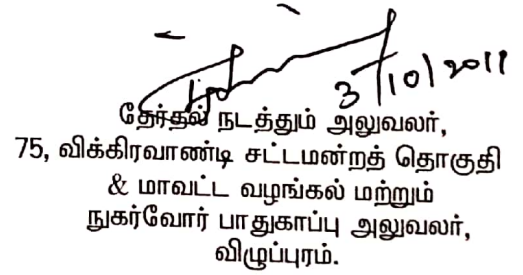 3/10/2011
தேர்தல் நடத்தும் அலுவலர்,
75, விக்கிரவாண்டி சட்டமன்றத் தொகுதி
& மாவட்ட வழங்கல் மற்றும்
நுகர்வோர் பாதுகாப்பு அலுவலர்,
விழுப்புரம்.